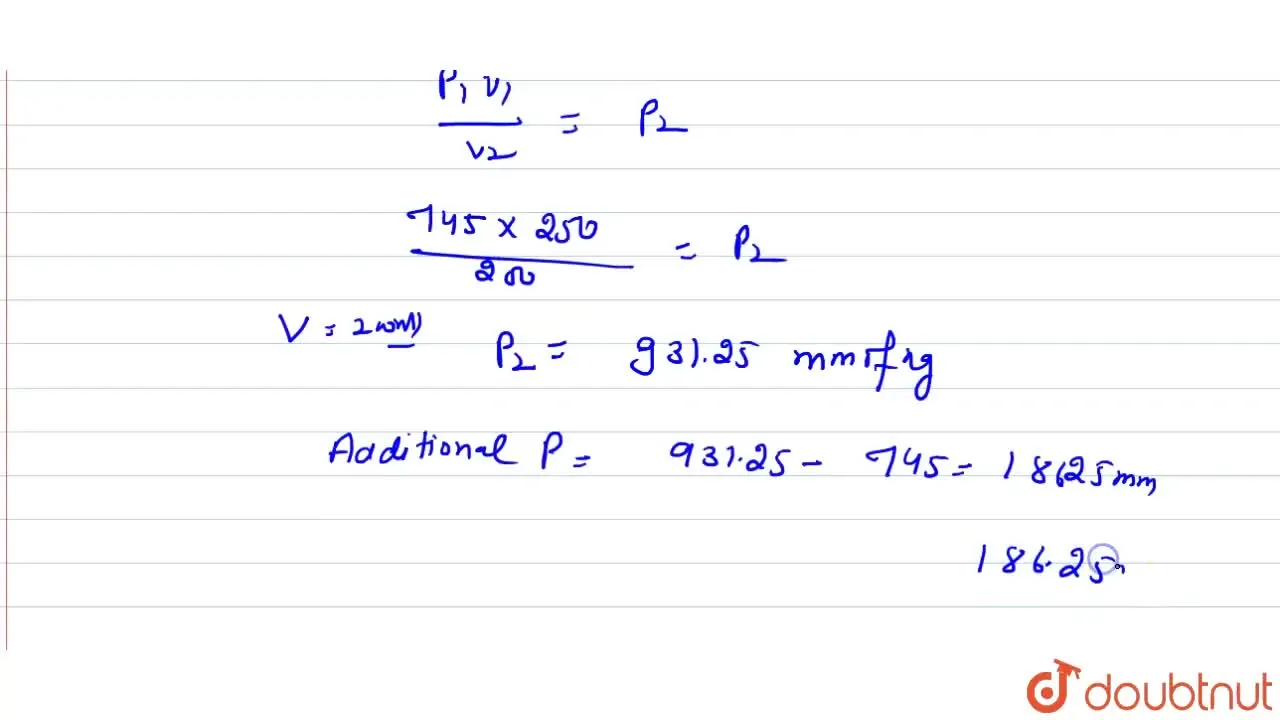 P1 V1
V2
= P2
745 x 250
200
= P2
V = 200ml
P2 = 931.25 mm of Hg
Additional P = 931.25 - 745 = 18625 mm
186.25
doubtnut